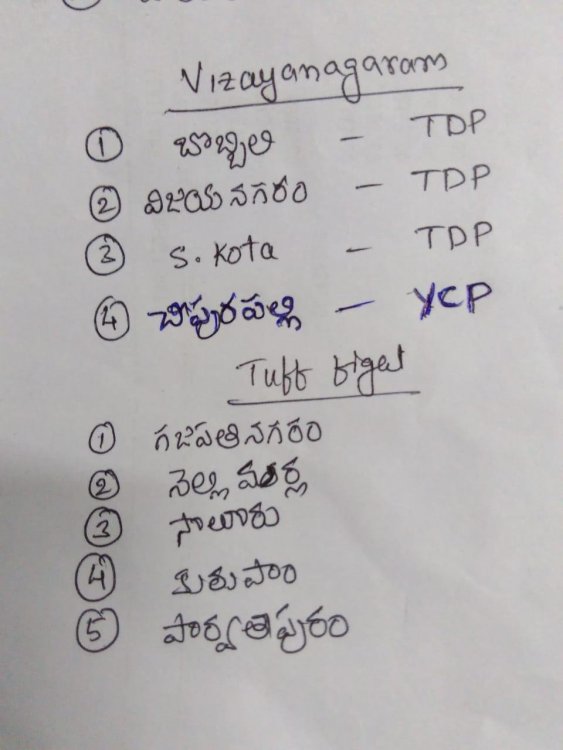 Vizayanagaram
① బొబ్బిలి - TDP
② విజయనగరం - TDP
③ S. Kota - TDP
④ చీపురపల్లి - YCP
Tuff figet
① గజపతినగరం
② నెల్లిమర్ల
③ సాలూరు
④ కురుపాం
⑤ పార్వతీపురం